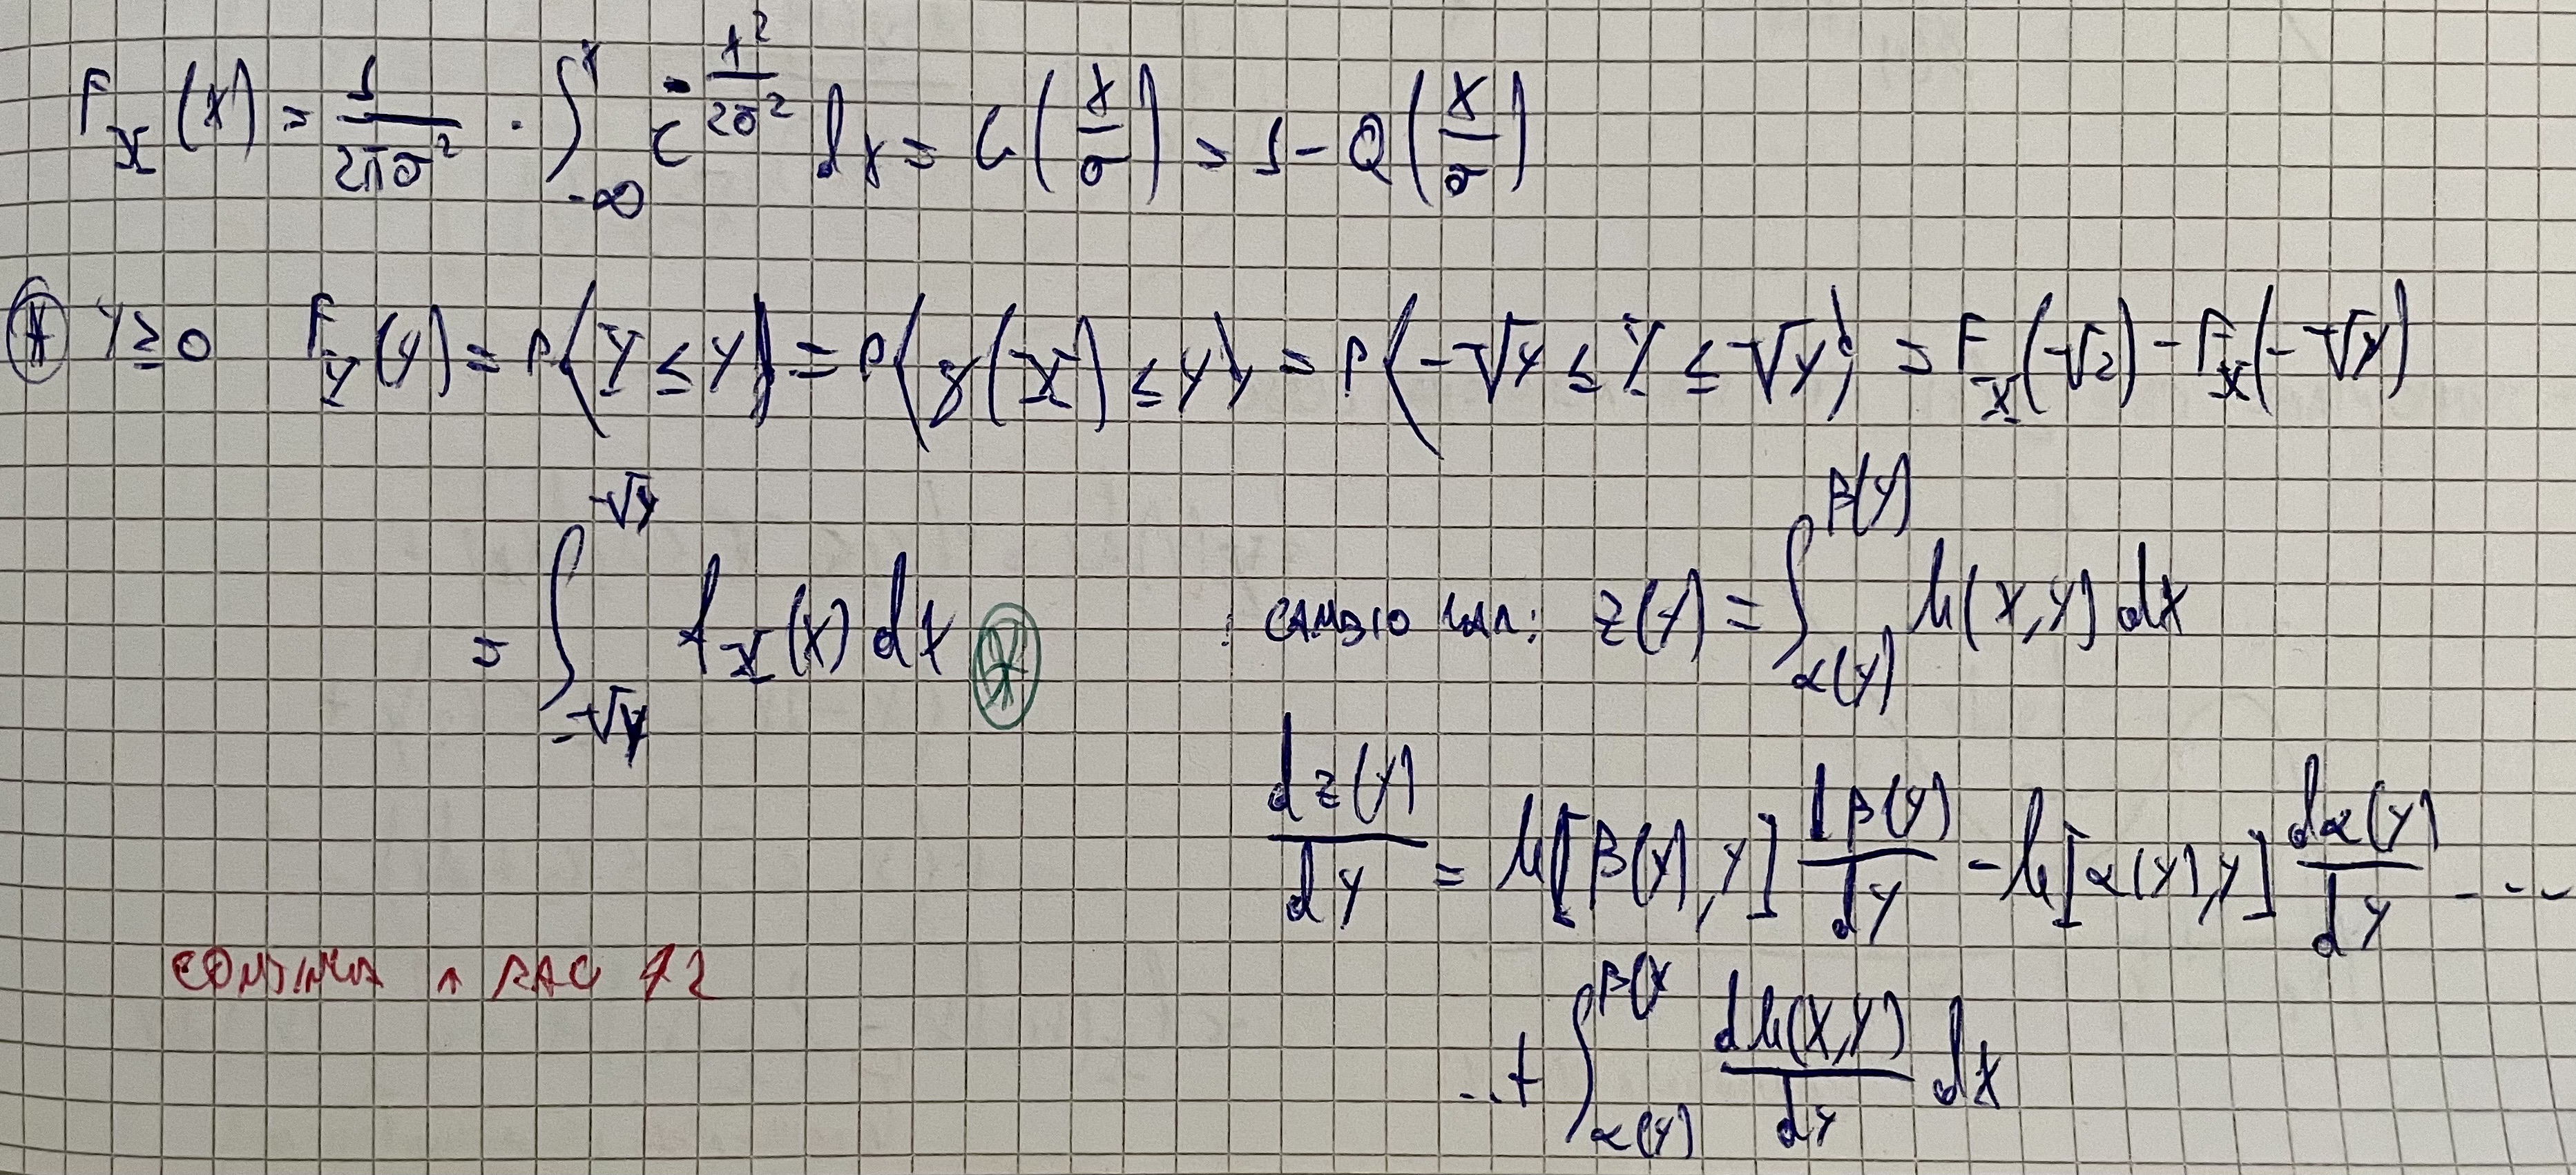 F_X(x) = 1/(2πσ²) · ∫_{-∞}^{x} e^{-x²/(2σ²)} dx = G(x/σ) = 1 - Q(x/σ)
y ≥ 0 F_Y(y) = P{Y ≤ y} = P{g(X) ≤ y} = P{-√y ≤ X ≤ √y} = F_X(√2) - F_X(-√y)
= ∫_{-√y}^{√y} f_X(x) dx
CAMBIO VAR: z(y) = ∫_{α(y)}^{β(y)} h(x,y) dx
dz(y)/dy = h[β(y),y] dβ(y)/dy - h[α(y),y] dα(y)/dy ...
..+ ∫_{α(y)}^{β(y} dh(x,y)/dy dx
CONTINUA A PAG 12